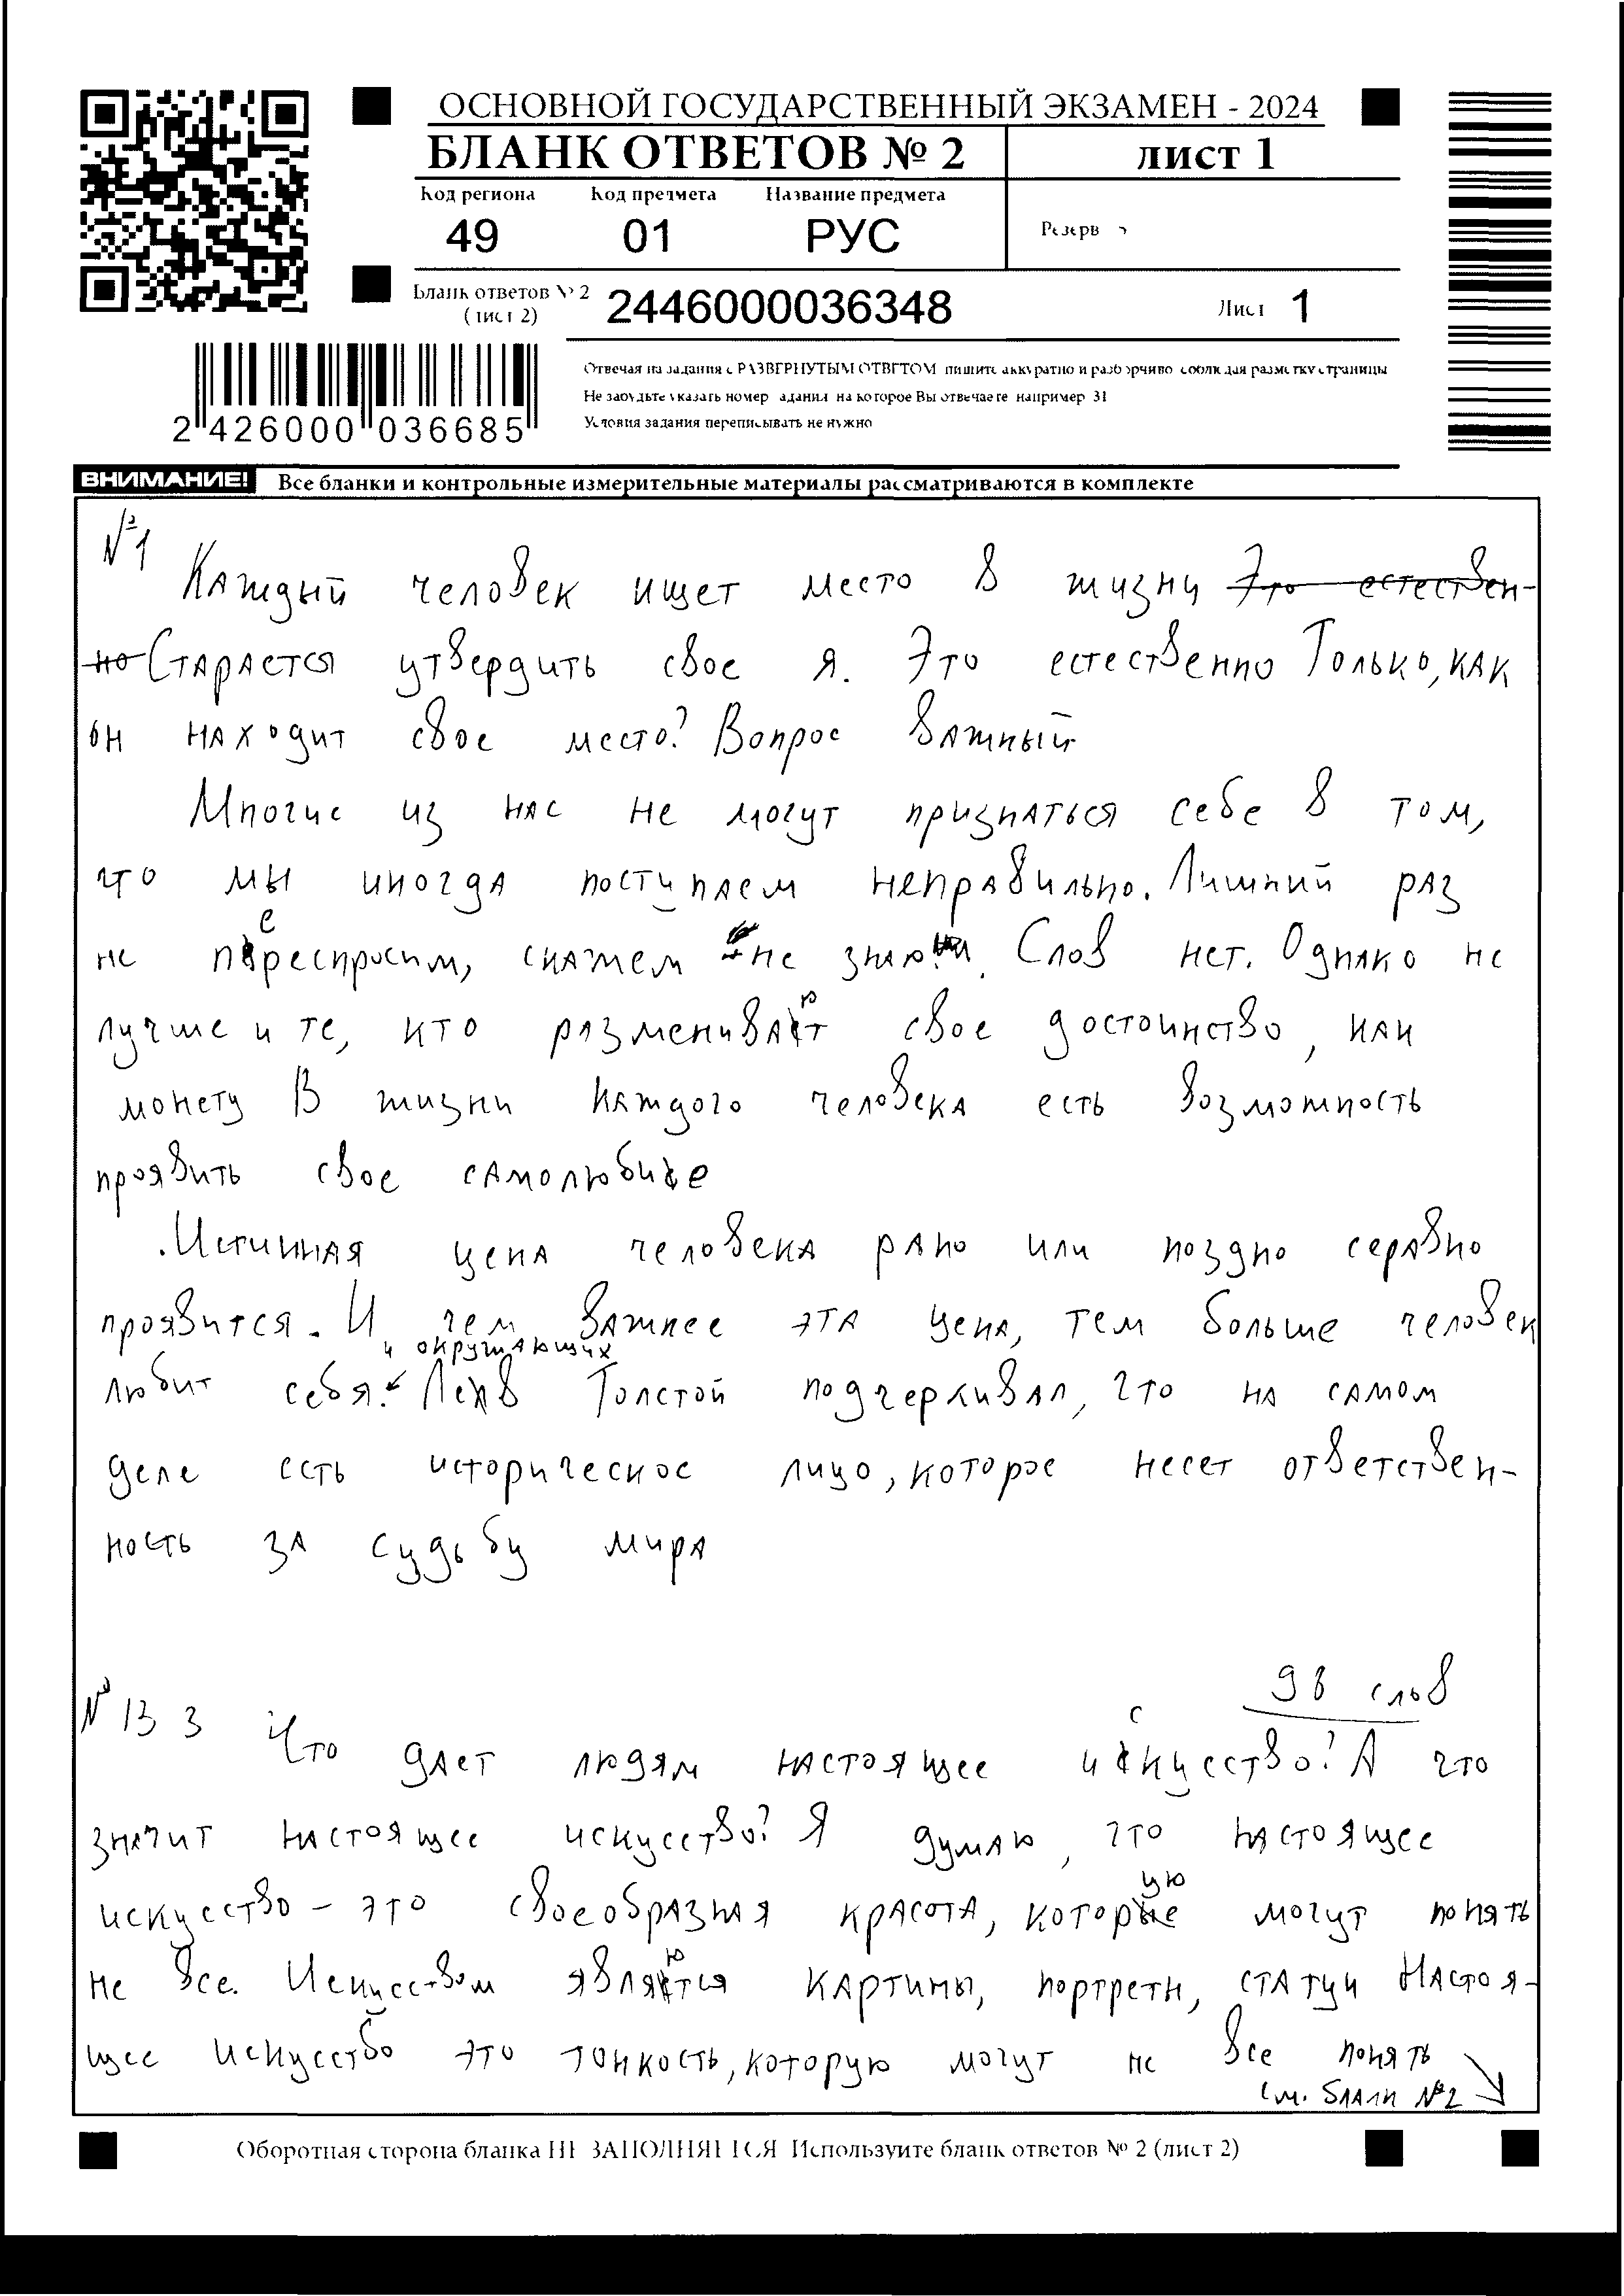 ОСНОВНОЙ ГОСУДАРСТВЕННЫЙ ЭКЗАМЕН - 2024
БЛАНК ОТВЕТОВ № 2
ЛИСТ 1
Код региона Код предмета Название предмета
49 01 РУС
Резерв
Бланк ответов № 2
(лист 2)
2446000036348
Лист 1
2 426000 036685
Отвечая на задания с РАЗВЕРНУТЫМ ОТВЕТОМ пишите аккуратно и разборчиво соблюдая разметку страницы
Не забудьте указать номер задания на которое Вы отвечаете например 31
Условия задания переписывать не нужно
ВНИМАНИЕ! Все бланки и контрольные измерительные материалы рассматриваются в комплекте
№1
Каждый человек ищет место в жизни Это естествен-
но Старается утвердить свое я. Это естественно Только, как
он находит свое место? Вопрос важный
Многие из нас не могут признаться себе в том,
что мы иногда поступаем неправильно. Лишний раз
не переспросим, скажем не знаю. Слов нет. Однако не
лучше и те, кто разменивают свое достоинство, как
монету В жизни каждого человека есть возможность
проявить свое самолюбие
.Истинная цена человека рано или поздно серавно
проявится. И чем важнее эта цена, тем больше человек
любит себя и окружающих. Лев Толстой подчеркивал, что на самом
деле есть историческое лицо, которое несет ответствен-
ность за судьбу мира
98 слов
№ 13 3 Что дает людям настоящее искусство? А что
значит настоящее искусство? Я думаю, что настоящее
искусство – это своеобразная красота, которую могут понять
не все. Искусством являются картины, портреты, статуи Настоя-
щее искусство это тонкость, которую могут не все понять
см. бланк №2
Оборотная сторона бланка НЕ ЗАПОЛНЯЕТСЯ Используите бланк ответов № 2 (лист 2)